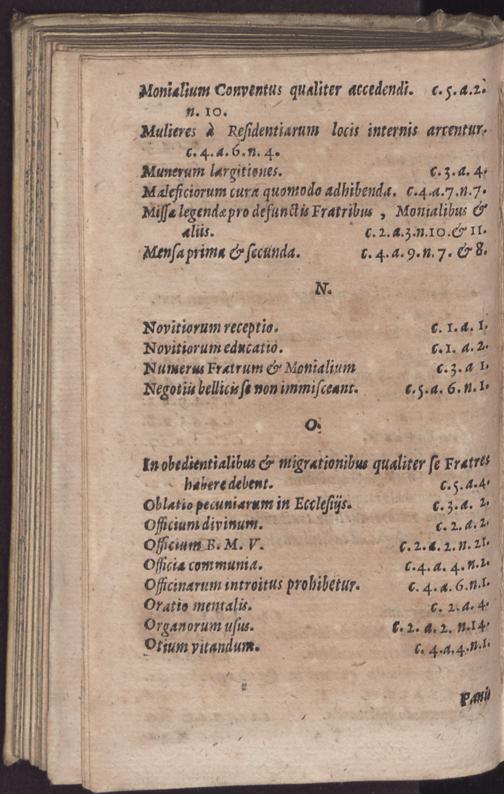 Monialium Conventus qualiter accedendi. c. 5. a. 2.
n. 10.
Mulieres à Residentiarum locis internis arcentur.
c. 4. a. 6. n. 4.
Munerum largitiones. c. 3. a. 4.
Maleficiorum cura quomodo adhibenda. c. 4. a. 7. n. 7.
Missæ legendæ pro defunctis Fratribus, Monialibus &
aliis. c. 2. a. 3. n. 10. & 11.
Mensa prima & secunda. c. 4. a. 9. n. 7. & 8.
N.
Novitiorum receptio. c. 1. a. 1.
Novitiorum educatio. c. 1. a. 2.
Numerus Fratrum & Monialium c. 3. a 1.
Negotiis bellicis se non immisceant. c. 5. a. 6. n. 1.
O.
In obedientialibus & migrationibus qualiter se Fratres
habere debent. c. 5. a. 4.
Oblatio pecuniarum in Ecclesijs. c. 3. a. 2.
Officium divinum. c. 2. a. 2.
Officium B. M. V. c. 2. a. 2. n. 21.
Officia communia. c. 4. a. 4. n. 2.
Officinarum introitus prohibetur. c. 4. a. 6. n. 1.
Oratio mentalis. c. 2. a. 4.
Organorum usus. c. 2. a. 2. n. 14.
Otium vitandum. c. 4. a. 4. n. 1.
Panis